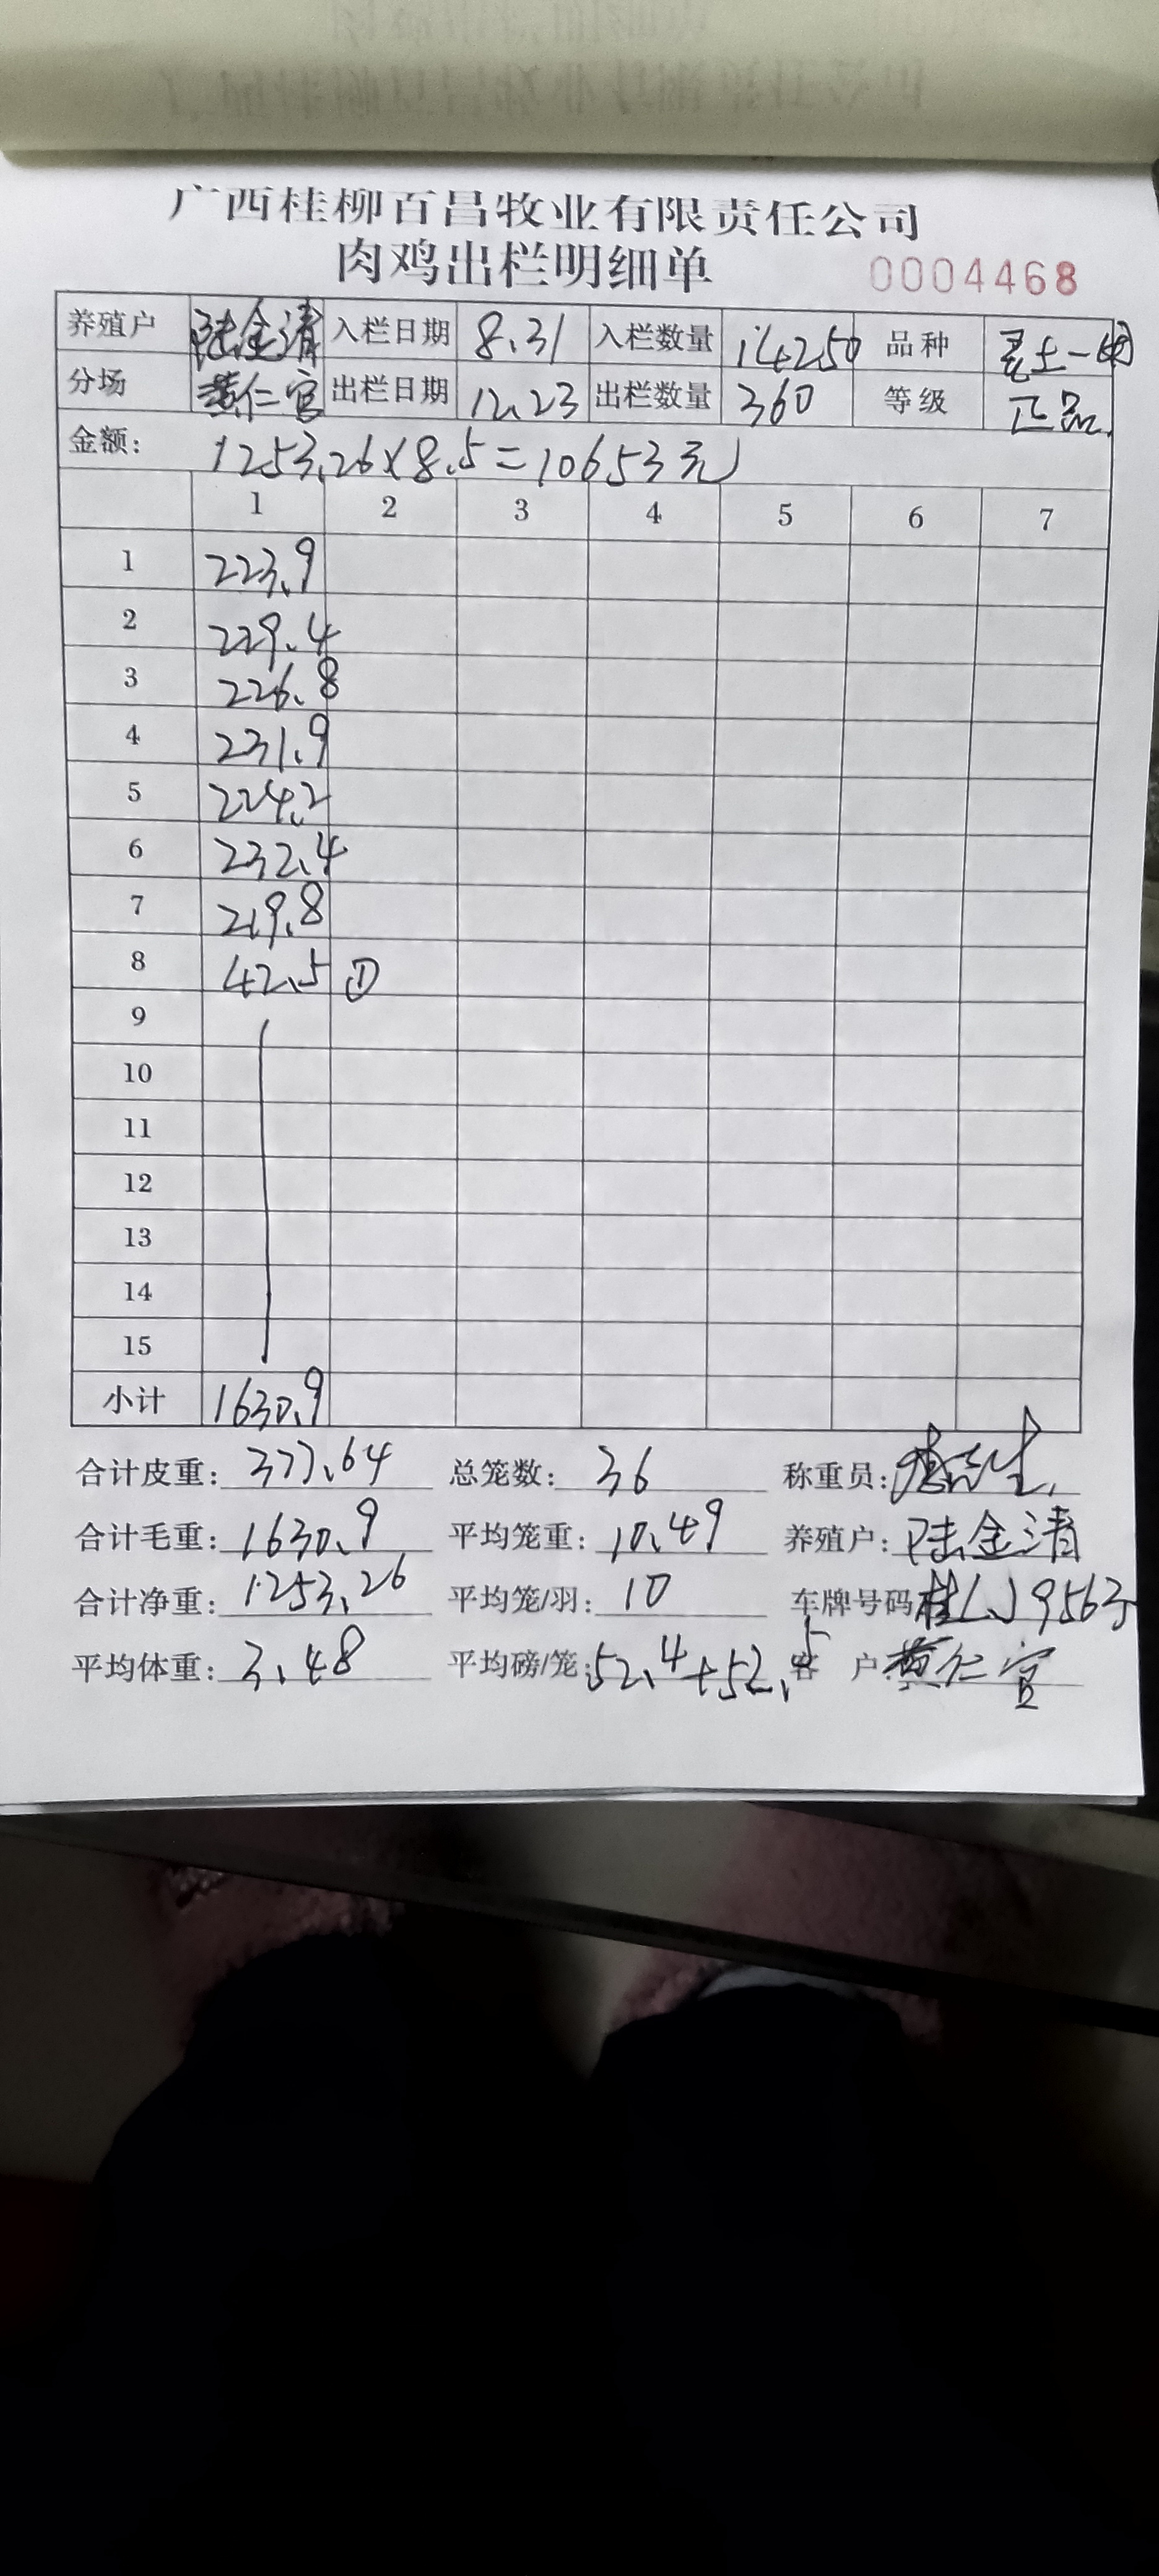 广西桂柳百昌牧业有限责任公司
肉鸡出栏明细单
0004468
养殖户 陆金清 入栏日期 8.31 入栏数量 14250 品种 土一
分场 黄仁官 出栏日期 12.23 出栏数量 360 等级 正品
金额: 1253.26×8.5=10653元
1 2 3 4 5 6 7
1 223.9
2 229.4
3 226.8
4 231.9
5 224.2
6 232.4
7 219.8
8 42.5 ①
9
10
11
12
13
14
15
小计 1630.9
合计皮重: 377.64 总笼数: 36 称重员:
合计毛重: 1630.9 平均笼重: 10.49 养殖户: 陆金清
合计净重: 1253.26 平均笼/羽: 10 车牌号码 桂L
平均体重: 3.48 平均磅/笼: 52.4+52.5 客 户 黄仁官